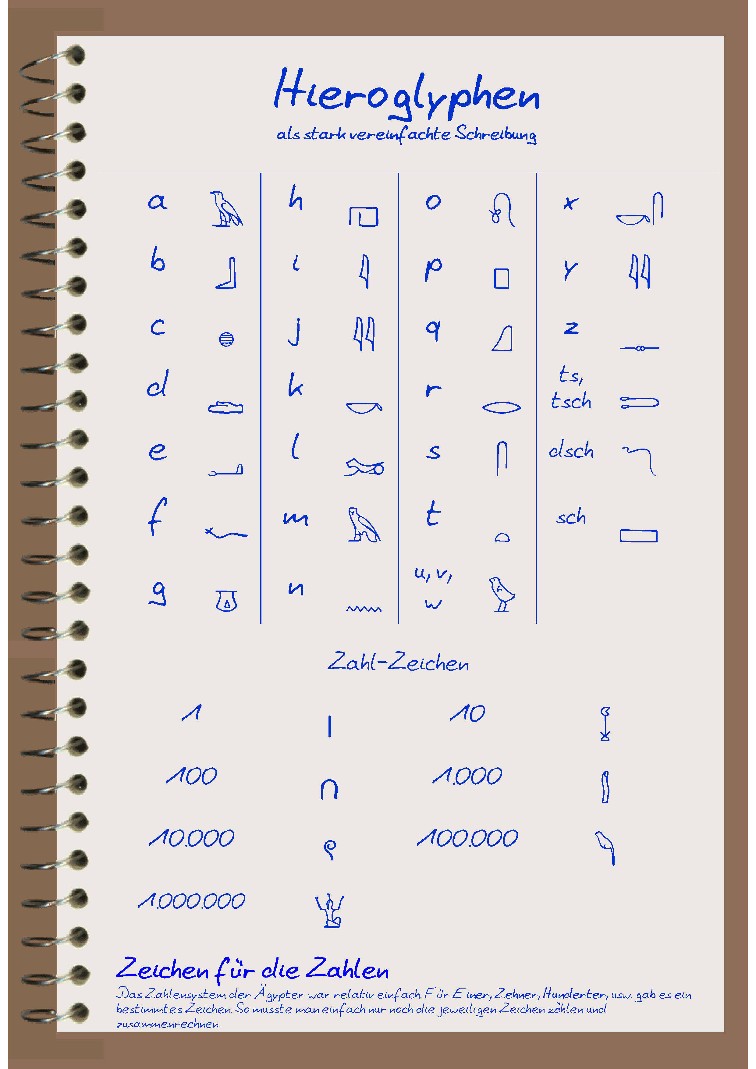 Hieroglyphen
als stark vereinfachte Schreibung
a h o x
b i p y
c j q z
d k r ts, tsch
e l s dsch
f m t sch
g n u, v, w
Zahl-Zeichen
1 10
100 1.000
10.000 100.000
1.000.000
Zeichen für die Zahlen
Das Zahlensystem der Ägypter war relativ einfach. Für Einer, Zehner, Hunderter, usw. gab es ein
bestimmtes Zeichen. So musste man einfach nur noch die jeweiligen Zeichen zählen und
zusammenrechnen.